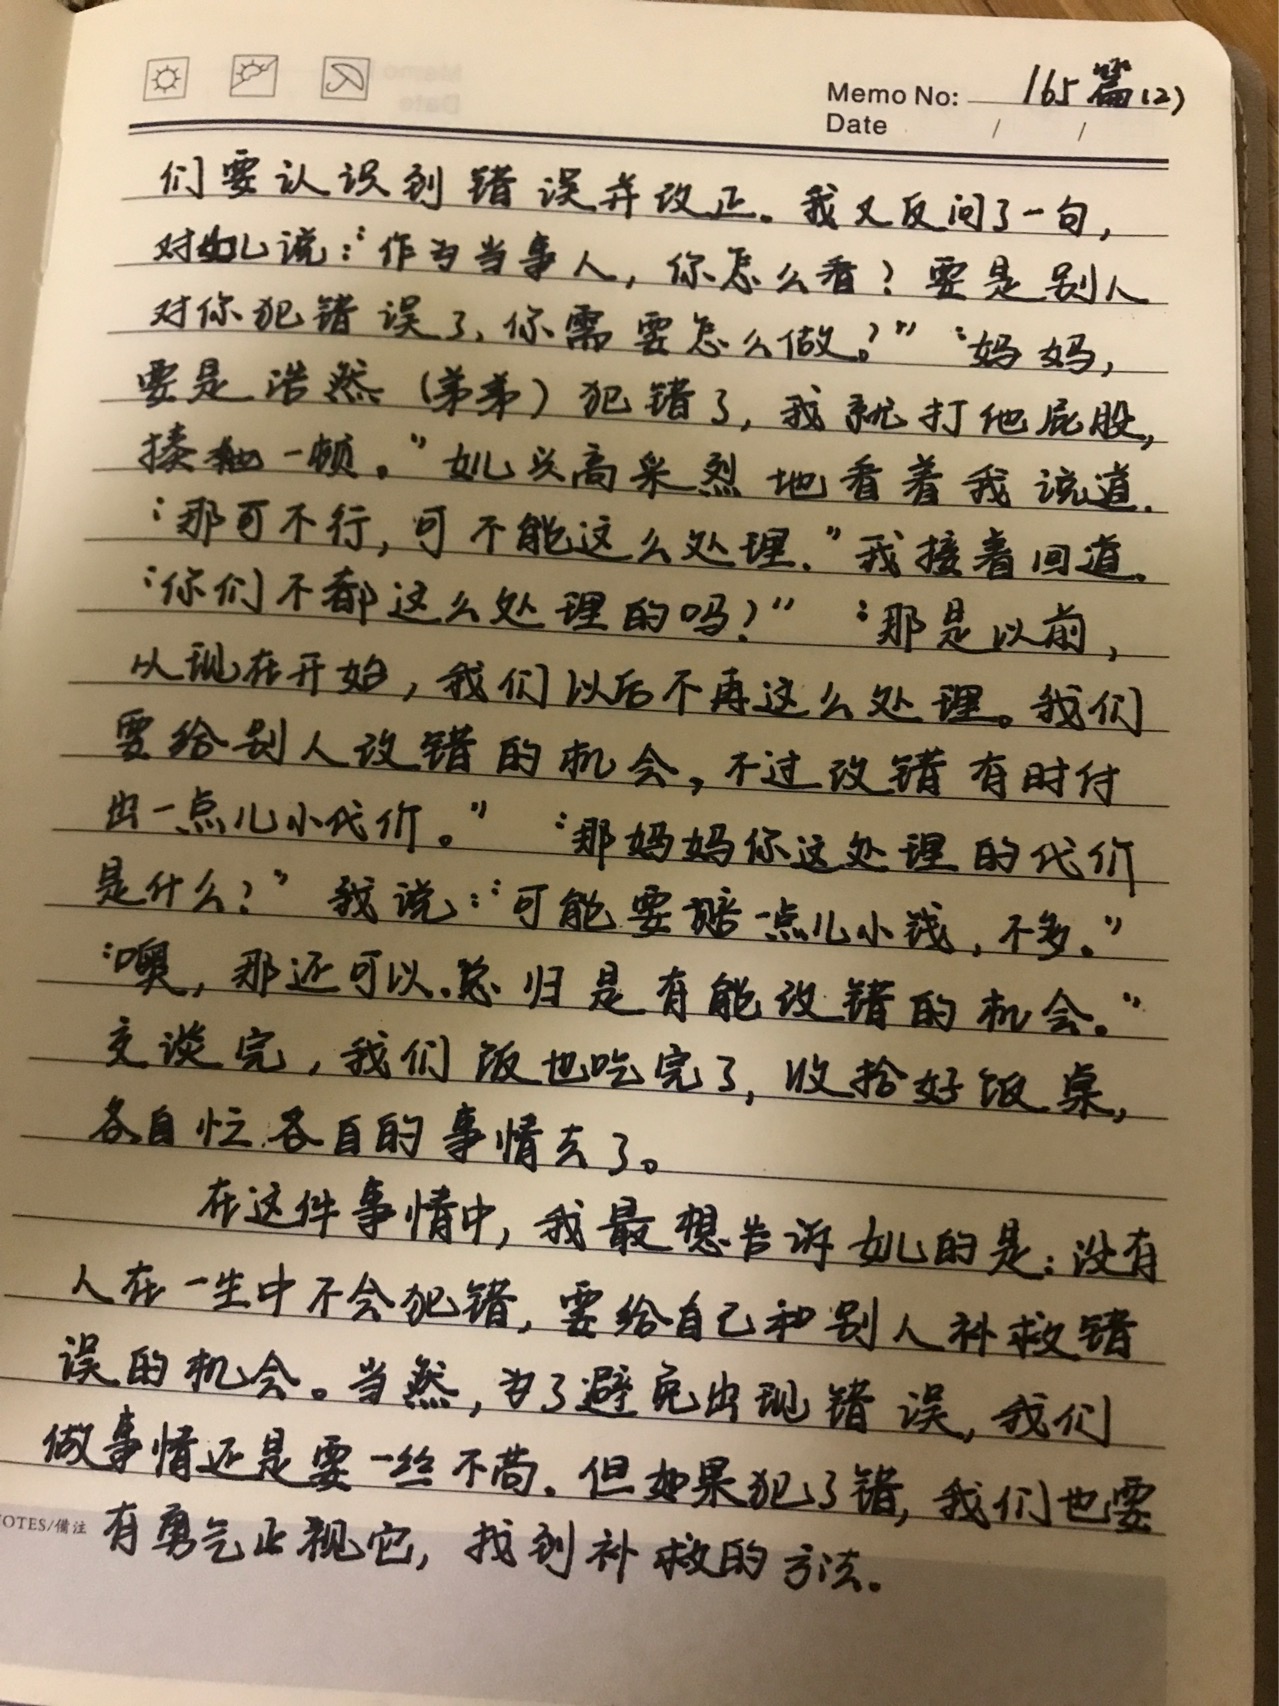 Memo No: 165篇(2)
Date / /
们要认识到错误并改正。我又反问了一句，
对女儿说：“作为当事人，你怎么看？要是别人
对你犯错误了，你需要怎么做？”“妈妈，
要是浩然（弟弟）犯错了，我就打他屁股，
揍他一顿。”女儿兴高采烈地看着我说道.
“那可不行，可不能这么处理.”我接着回道.
“你们不都这么处理的吗？”“那是以前，
从现在开始，我们以后不再这么处理。我们
要给别人改错的机会，不过改错有时付
出一点儿小代价。”“那妈妈你这处理的代价
是什么？”我说：“可能要赔一点儿小钱，不多。”
“噢，那还可以.总归是有能改错的机会。”
交谈完，我们饭也吃完了，收拾好饭桌，
各自忙各自的事情去了。
在这件事情中，我最想告诉女儿的是：没有
人在一生中不会犯错，要给自己和别人补救错
误的机会。当然，为了避免出现错误，我们
做事情还是要一丝不苟.但如果犯了错，我们也要
OTES/備注 有勇气正视它，找到补救的方法。